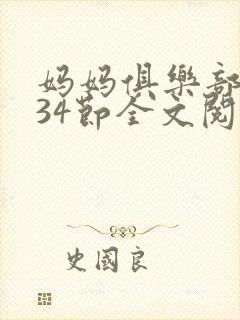 妈妈俱樂部
34節全文閱
史國良